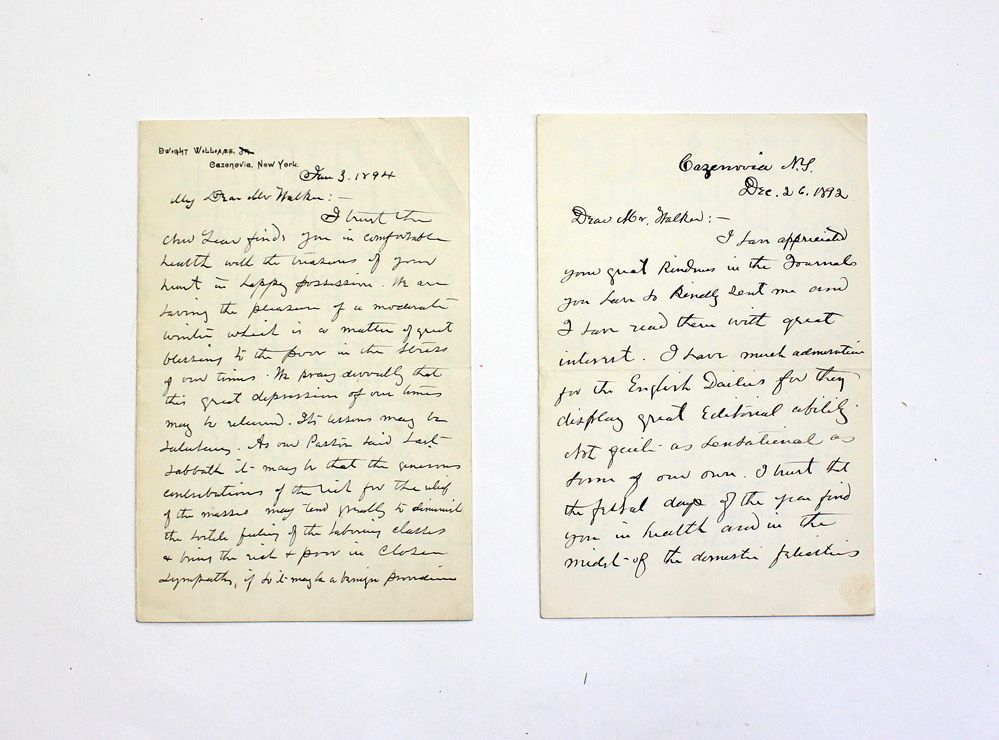 DWIGHT WILLIAMS, JR.
Cazenovia, New York.
Jan 3. 1894
My Dear Mr Walker:—
I trust the
New Year finds you in comfortable
health with the treasures of your
heart in happy possession. We are
having the pleasure of a moderate
winter which is a matter of great
blessing to the poor in the stress
of our times. We pray devoutly that
this great depression of our times
may be relieved. Its lessons may be
salutary. As our Pastor said last
Sabbath it may be that the generous
contributions of the rich for the relief
of the masses may tend greatly to diminish
the hostile feeling of the laboring classes
& bring the rich & poor in closer
sympathy, if so it may be a benign providence
Cazenovia N.Y.
Dec. 26. 1892
Dear Mr. Walker:—
I have appreciated
your great kindness in the Journals
you have so kindly sent me and
I have read them with great
interest. I have much admiration
for the English Dailies for they
display great Editorial ability.
Not quite as sensational as
some of our own. I trust that
the festal days of the year find
you in health and in the
midst of the domestic felicities